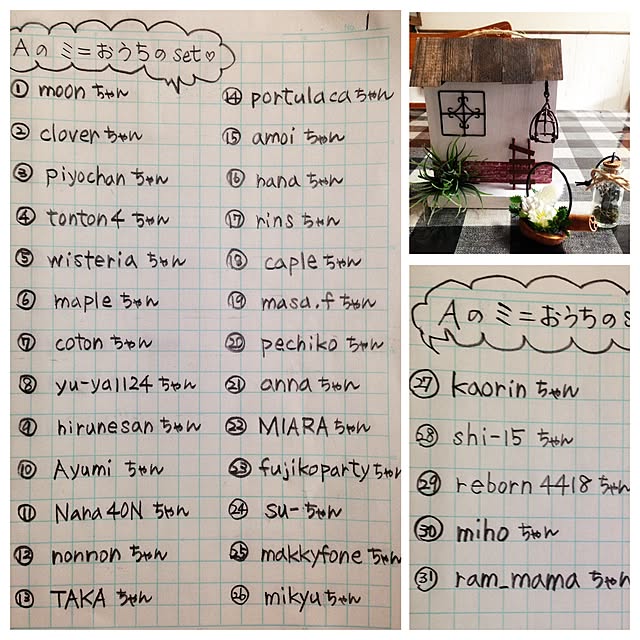 Aのミニおうちのset♡
① moonちゃん
② cloverちゃん
③ piyochanちゃん
④ tonton4ちゃん
⑤ wisteriaちゃん
⑥ mapleちゃん
⑦ cotonちゃん
⑧ yu-ya1124ちゃん
⑨ hirunesanちゃん
⑩ Ayumiちゃん
⑪ Nana40Nちゃん
⑫ nonnonちゃん
⑬ TAKAちゃん
⑭ portulacaちゃん
⑮ amoiちゃん
⑯ nanaちゃん
⑰ rinsちゃん
⑱ capleちゃん
⑲ masa.fちゃん
⑳ pechikoちゃん
㉑ annaちゃん
㉒ MIARAちゃん
㉓ fujikopartyちゃん
㉔ su-ちゃん
㉕ makkyfoneちゃん
㉖ mikyuちゃん
Aのミニおうちのs
㉗ kaorinちゃん
㉘ shi-15ちゃん
㉙ reborn4418ちゃん
㉚ mihoちゃん
㉛ ram_mamaちゃん